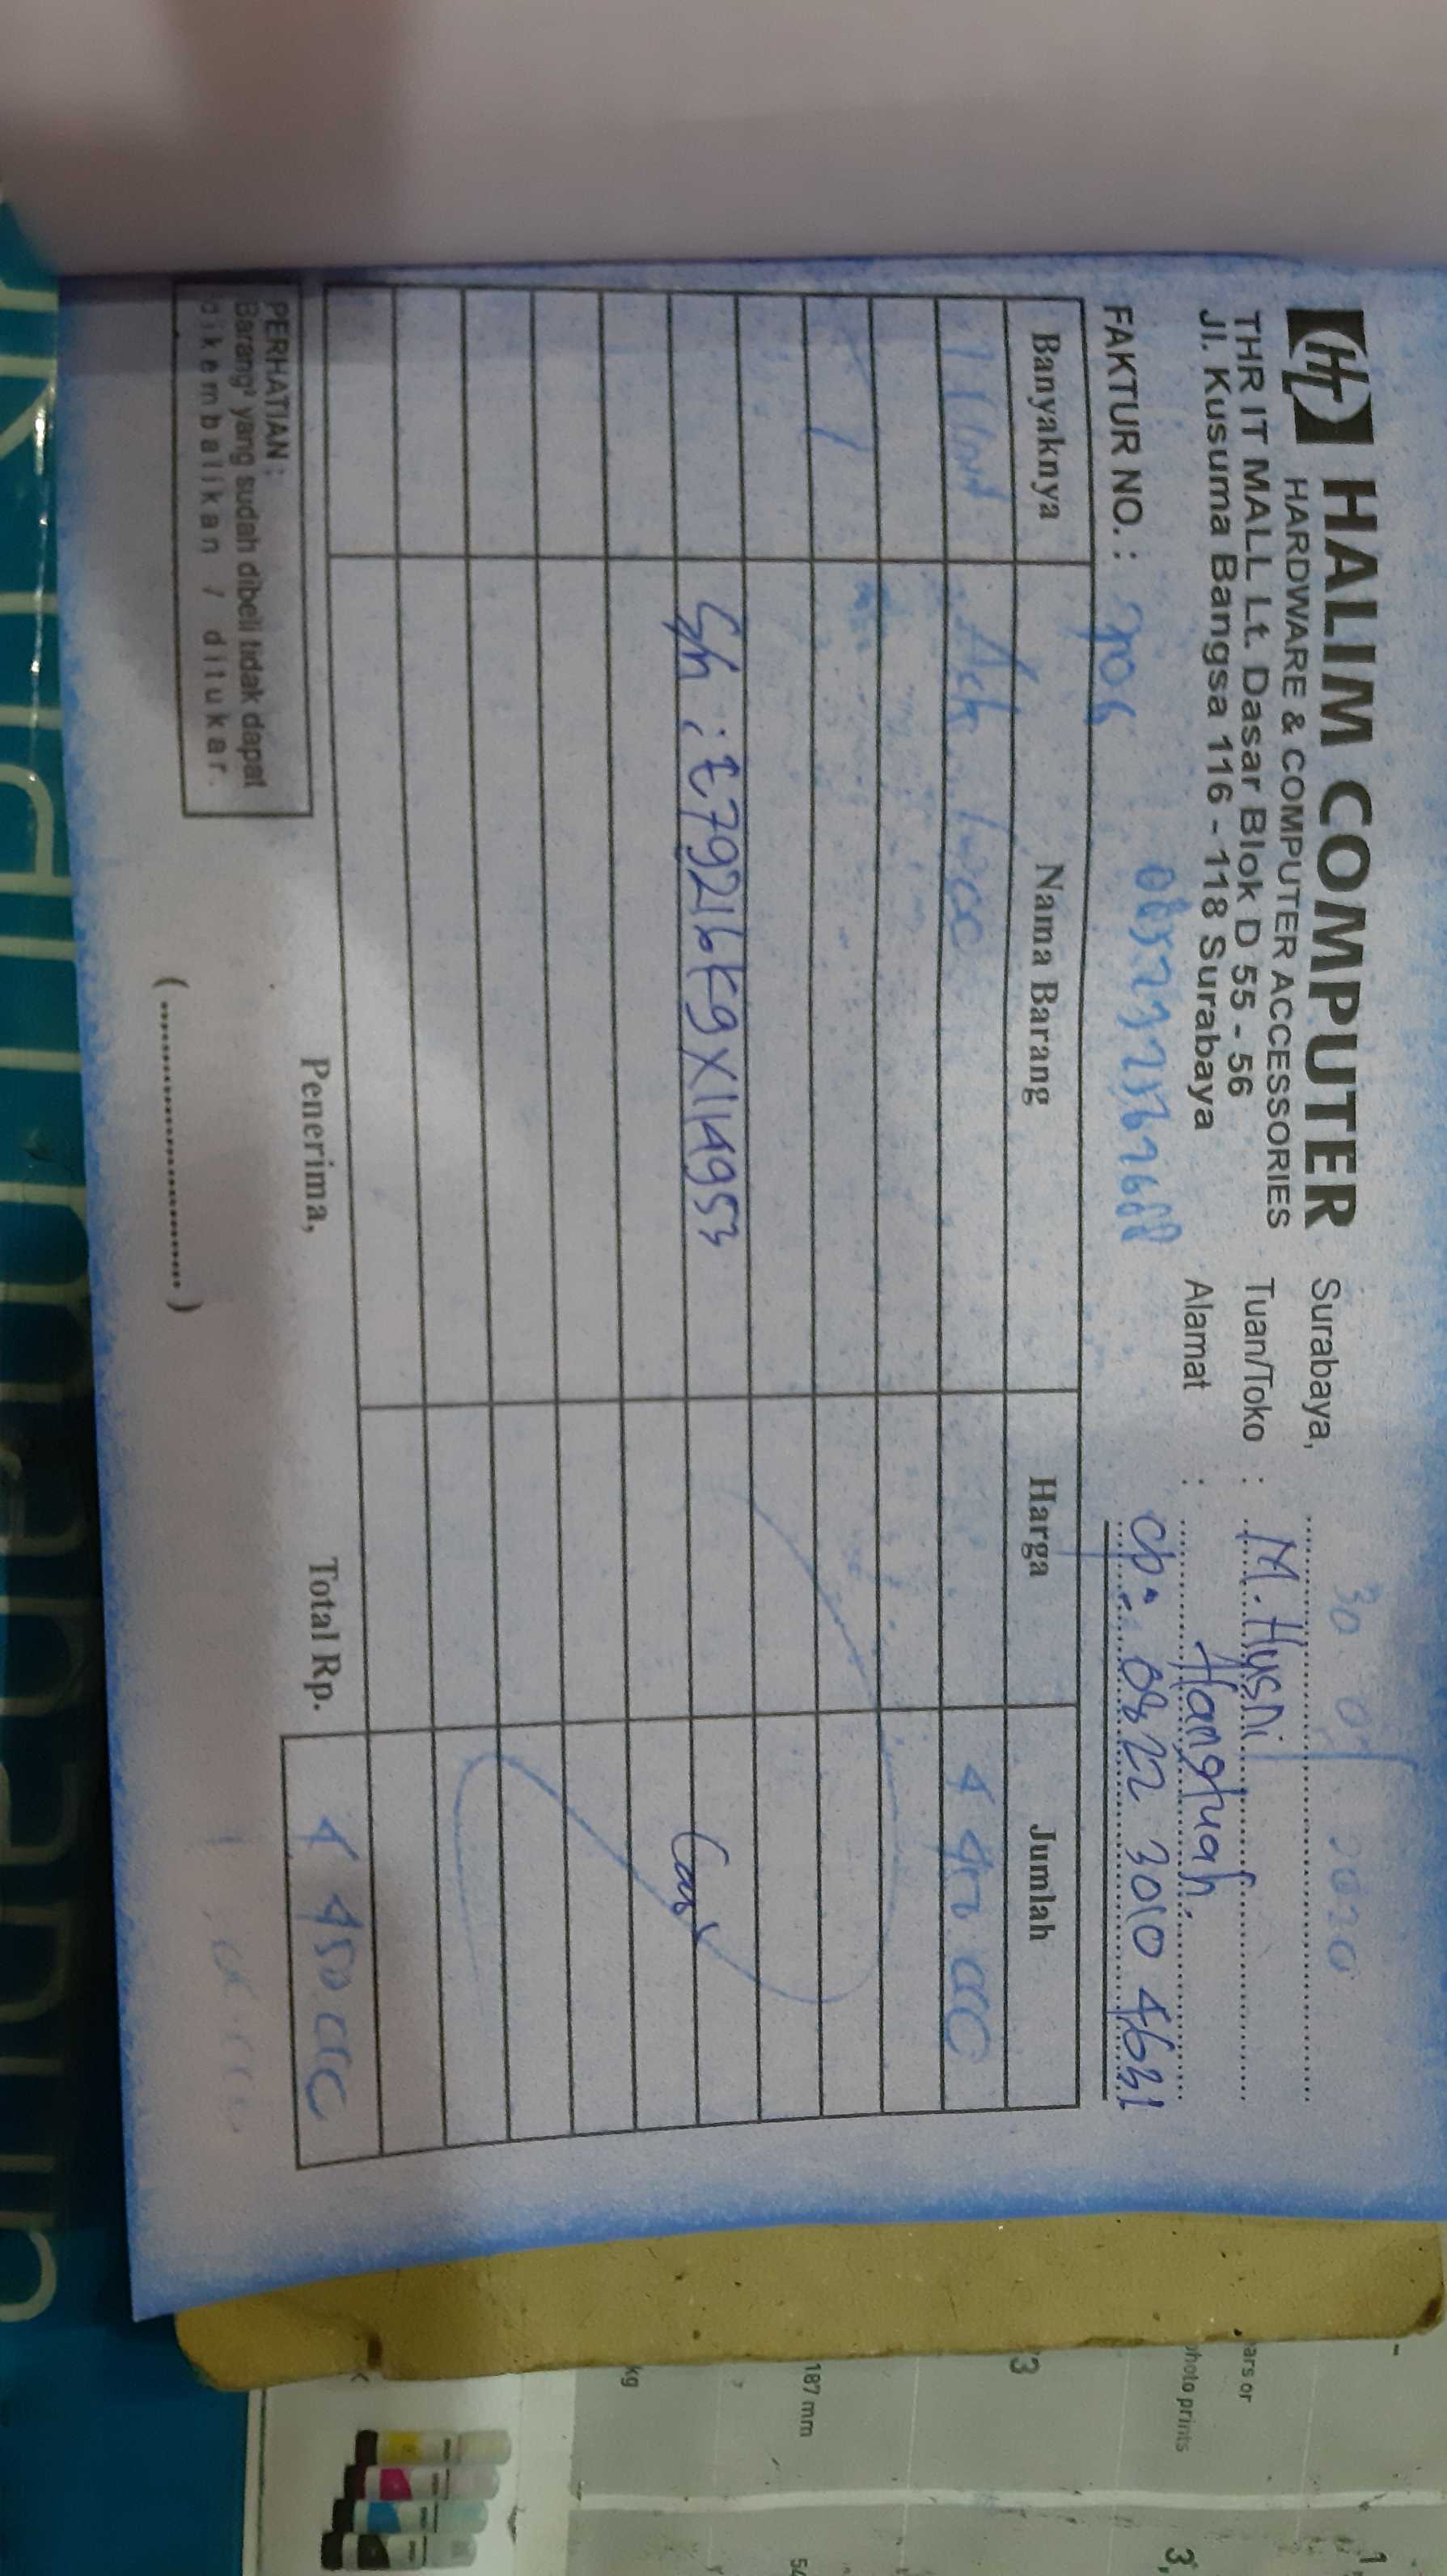 HT HALIM COMPUTER
HARDWARE & COMPUTER ACCESSORIES
THR IT MALL Lt. Dasar Blok D 55 - 56
Jl. Kusuma Bangsa 116 - 118 Surabaya
Surabaya, 30 2020
Tuan/Toko : M. Husni
Alamat : Hangtuah.
cp: 0822 3010 4631
FAKTUR NO. :
Banyaknya Nama Barang Harga Jumlah
1 Unit
S/n : E79216K9X114953
Cash
Total Rp. 4 450 000
Penerima,
(....................)
PERHATIAN :
Barang² yang sudah dibeli tidak dapat
dikembalikan / ditukar.
ars or
photo prints
187 mm
kg
3